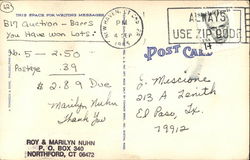 12
THIS SPACE FOR WRITING MESSAGES
Big Auction - Barrs
You Have Won Lots:
No. 5 - 2.50
Postage .39
$2.89 Due
Marilyn Nuhn
Thank You
ROY & MARILYN NUHN
P. O. BOX 340
NORTHFORD, CT 06472
NEW HAVEN, CT
PM
4 SEP
1985
ALWAYS
USE ZIP CODE
POST CARD
J. Miscione
213 A Zenith
El Paso, Tx.
79912